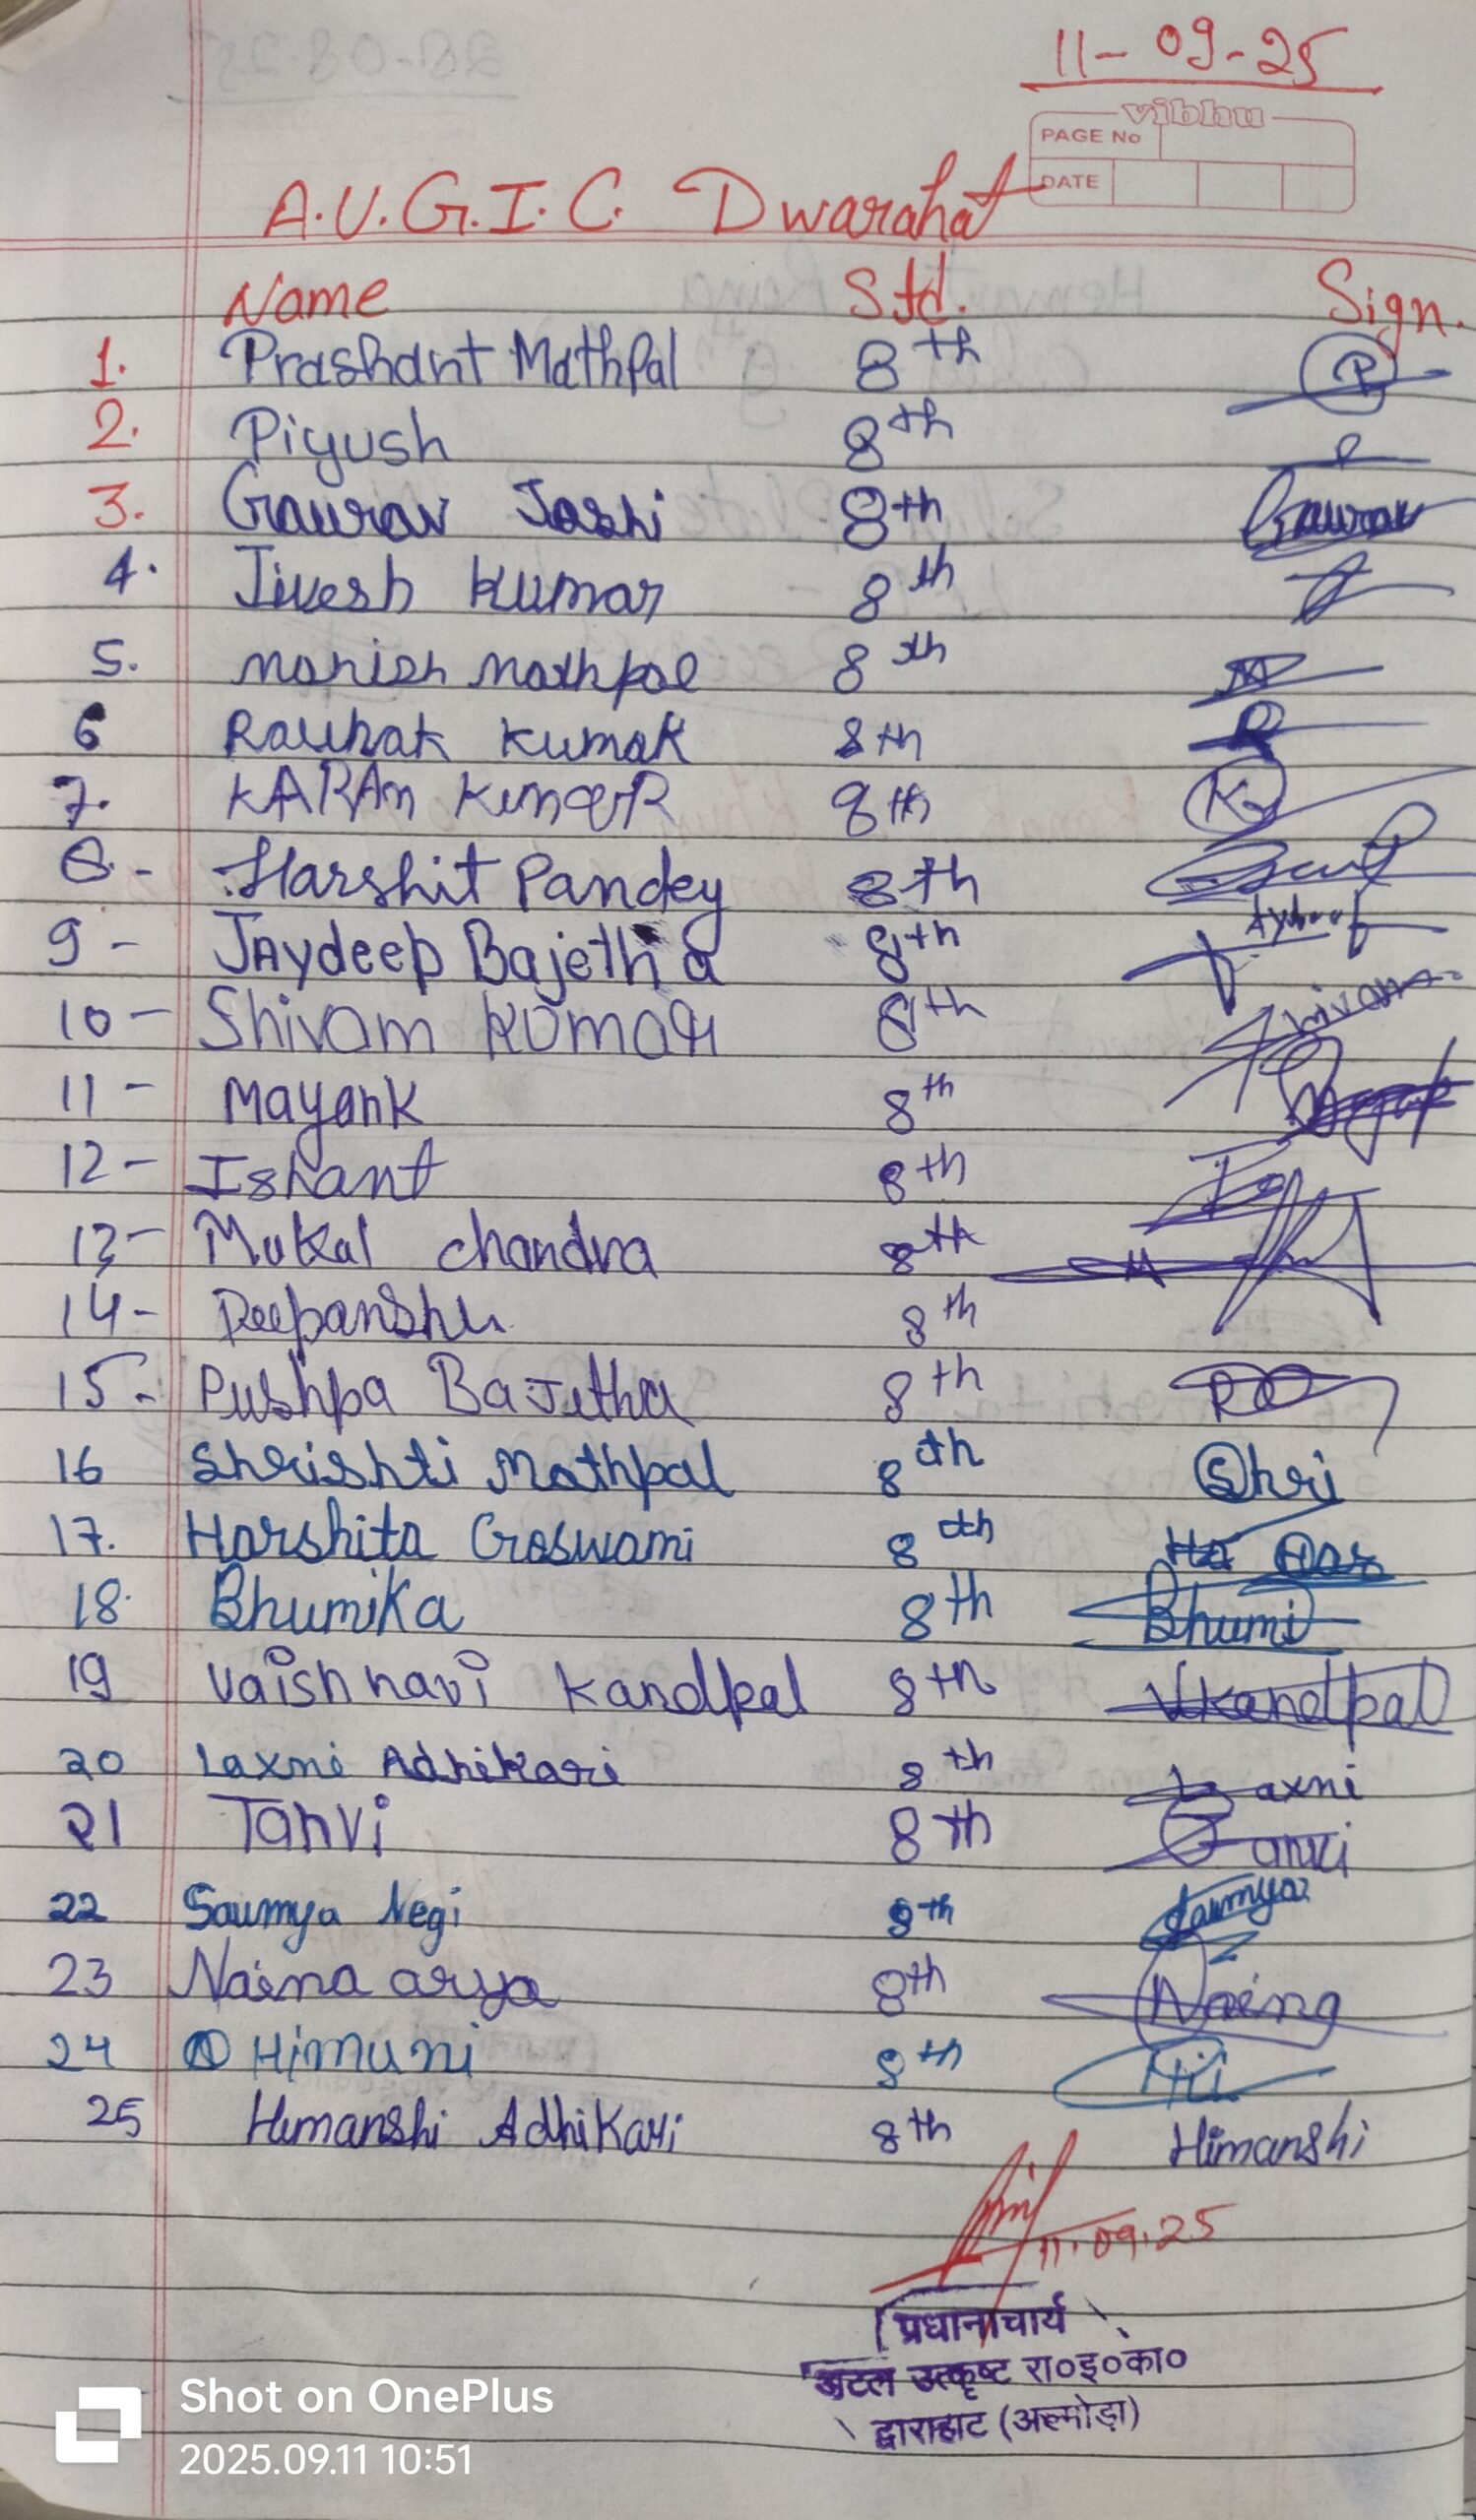 11-09-25
vibhu
PAGE No
DATE
A.U.G.I.C. Dwarahat
Name Std. Sign.
1. Prashant Mathpal 8th P
2. Piyush 8th
3. Gaurav Joshi 8th Gaurav
4. Jivesh Kumar 8th
5. manish mathpal 8th M
6 Raunak Kumar 8th R
7. KARAn KumaR 8th K
8 - Harshit Pandey 8th
9 - JAydeep Bajetha 8th
10 - Shivam Kumar 8th Shivam
11 - Mayank 8th
12 - Ishant 8th
13 - Mukal chandra 8th M
14 - Deepanshu 8th
15 - Pushpa Bajetha 8th
16 Shrishti Mathpal 8th Shri
17. Harshita Goswami 8th Har
18. Bhumika 8th Bhumi
19 Vaishnavi Kandpal 8th VKandpal
20 Laxmi Adhikari 8th Laxmi
21 Tanvi 8th Tanvi
22 Saumya Negi 8th Saumya
23 Naina arya 8th Naina
24 Himuni 8th Hi
25 Himanshi Adhikari 8th Himanshi
11.09.25
प्रधानाचार्य
अटल उत्कृष्ट रा०इ०का०
द्वाराहाट (अल्मोड़ा)
Shot on OnePlus
2025.09.11 10:51